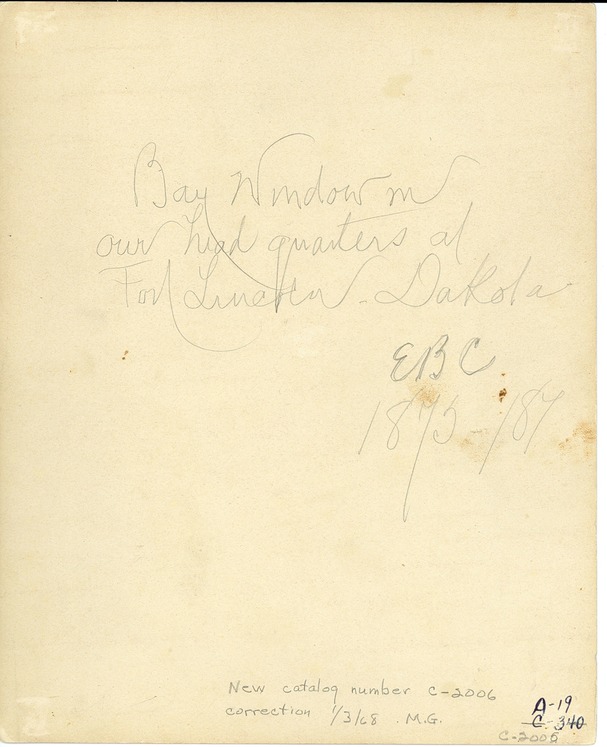 Bay Window in
our head quarters at
Fort Lincoln - Dakota
EBC
1875 -
New catalog number C-2006
correction 1/3/68 . M.G.
A-19
C-340
C-2006